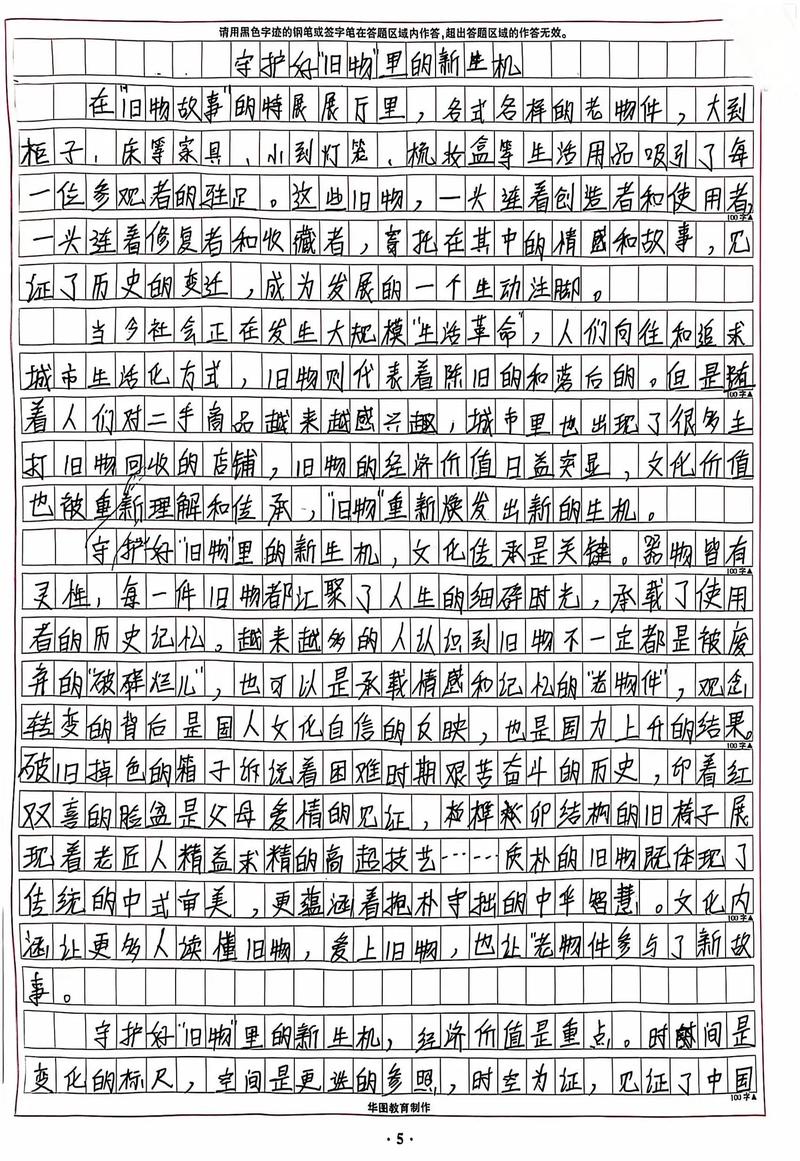 请用黑色字迹的钢笔或签字笔在答题区域内作答,超出答题区域的作答无效。
守护好"旧物"里的新生机
在"旧物故事"的特展展厅里，各式各样的老物件，大到
柜子、床等家具、小到灯笼、梳妆盒等生活用品吸引了每
一位参观者的驻足。这些旧物，一头连着创造者和使用者，
100字▲
一头连着修复者和收藏者，寄托在其中的情感和故事，见
证了历史的变迁，成为发展的一个生动注脚。
当今社会正在发生大规模"生活革命"，人们向往和追求
城市生活化方式，旧物则代表着陈旧的和落后的。但是随
100字▲
着人们对二手商品越来越感兴趣，城市里也出现了很多主
打旧物回收的店铺，旧物的经济价值日益突显，文化价值
也被重新理解和传承，"旧物"重新焕发出新的生机。
守护好"旧物"里的新生机，文化传承是关键。器物皆有
100字▲
灵性，每一件旧物都汇聚了人生的细碎时光，承载了使用
者的历史记忆。越来越多的人认识到旧物不一定都是被废
弃的"破碎烂儿"，也可以是承载情感和记忆的"老物件"，观念
转变的背后是国人文化自信的反映，也是国力上升的结果。
100字▲
破旧掉色的箱子诉统着困难时期艰苦奋斗的历史，印着红
双喜的脸盆是父母爱情的见证，榫卯结构的旧椅子展
现着老匠人精益求精的高超技艺……质朴的旧物既体现了
传统的中式审美，更蕴涵着抱朴守拙的中华智慧。文化内
100字▲
涵让更多人读懂旧物，爱上旧物，也让"老物件参与了新故
事。
守护好"旧物"里的新生机，经济价值是重点。时间是
变化的标尺，空间是更迭的参照，时空为证，见证了中国
100字▲
华图教育制作
· 5 ·